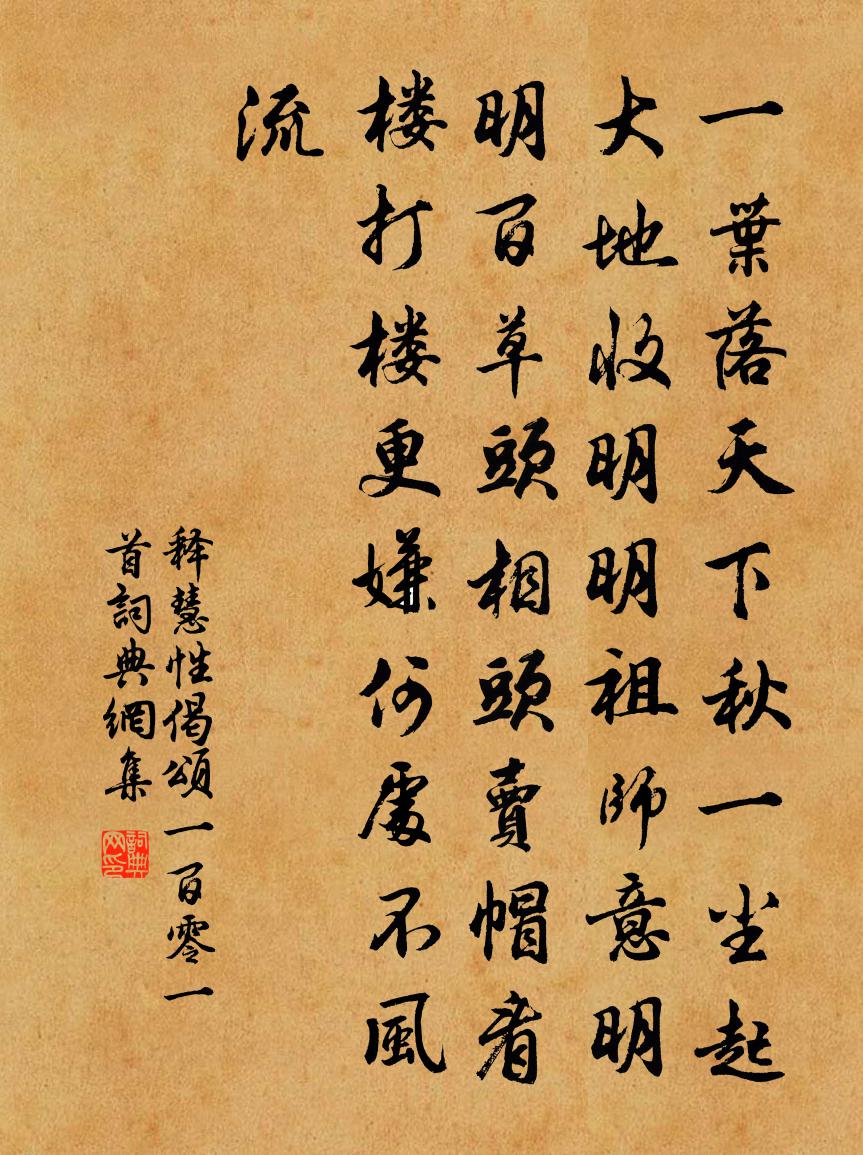 一葉落天下秋一尘起
大地收明明祖師意明
明百草頭相頭賣帽看
楼打楼更嫌何處不風
流
释慧性偈頌一百零一
首詞典網集
詞典
网印